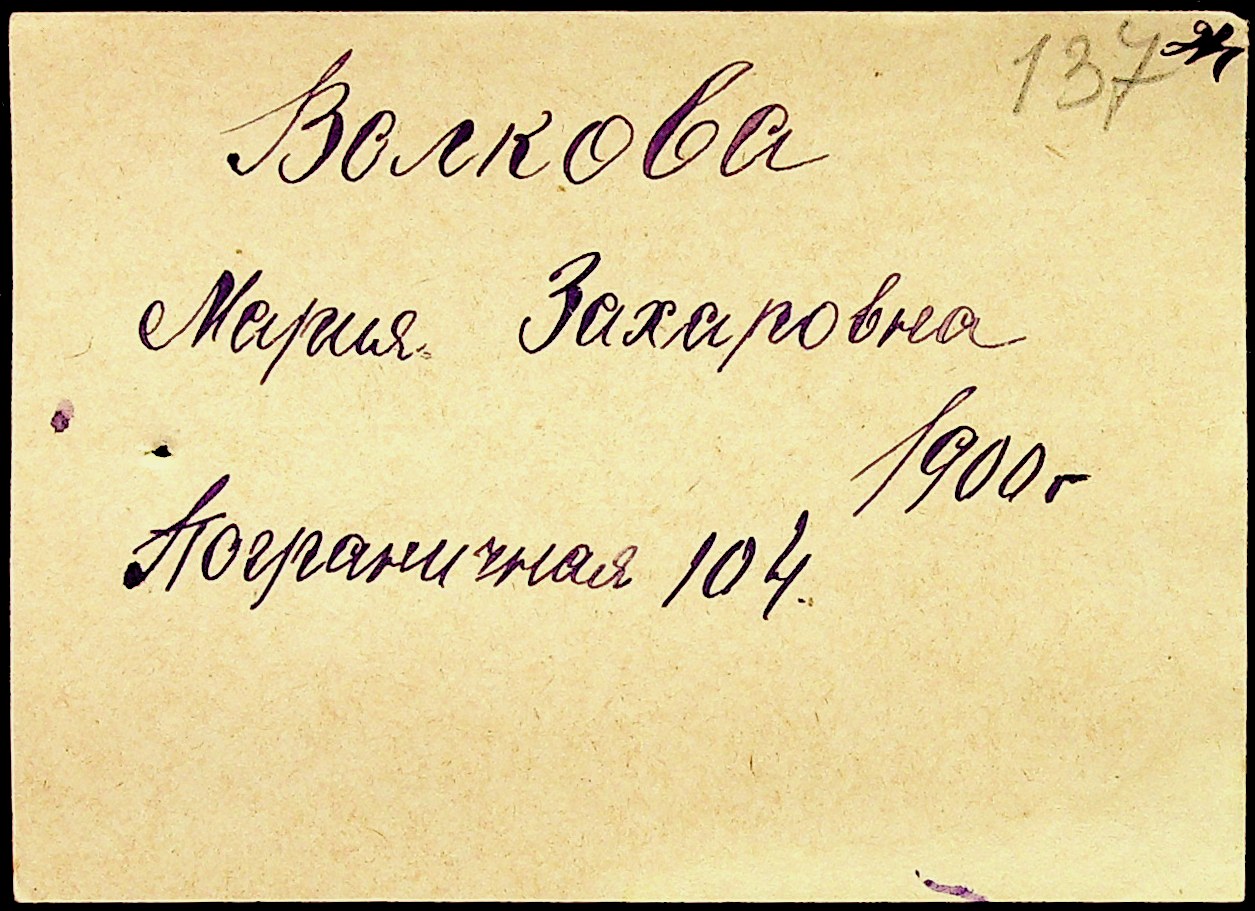 137
Волкова
Мария Захаровна
1900 г
Пограничная 104.